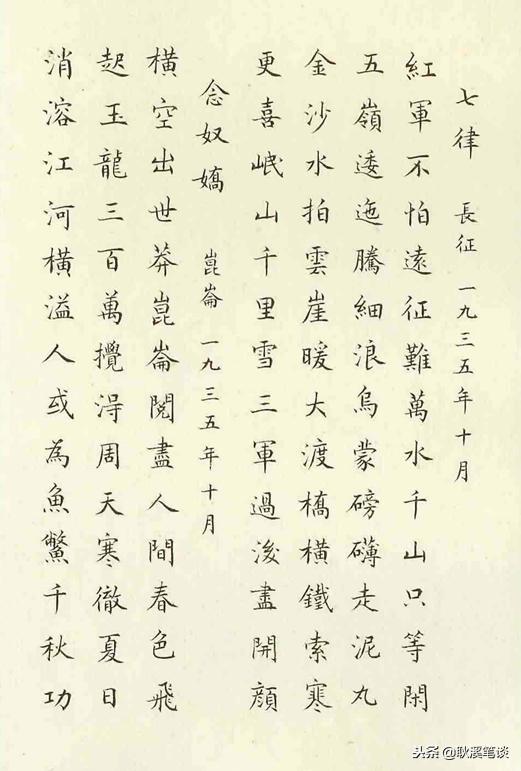 七律 長征 一九三五年十月
紅軍不怕遠征難萬水千山只等閑
五嶺逶迤騰細浪烏蒙磅礴走泥丸
金沙水拍雲崖暖大渡橋橫鐵索寒
更喜岷山千里雪三軍過後盡開顔
念奴嬌 崑崙 一九三五年十月
橫空出世莽崑崙閱盡人間春色飛
起玉龍三百萬攪得周天寒徹夏日
消溶江河橫溢人或為魚鱉千秋功
头条 @耿溪笔谈